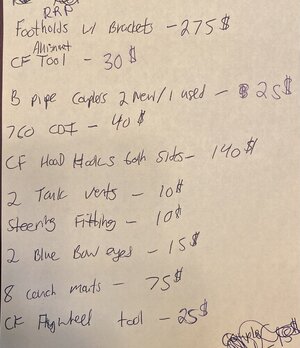 RRP
Footholds w/ Brackets - 275$
Alinment
CF Tool - 30$
B pipe Couplers 2 New/1 used - 25$
760 CDI - 40$
CF Hood Hooks both sids - 140$
2 Tank vents - 10$
Steering Fitting - 10$
2 Blue Bow eyes - 15$
8 couch monts - 75$
CF Flywheel tool - 25$